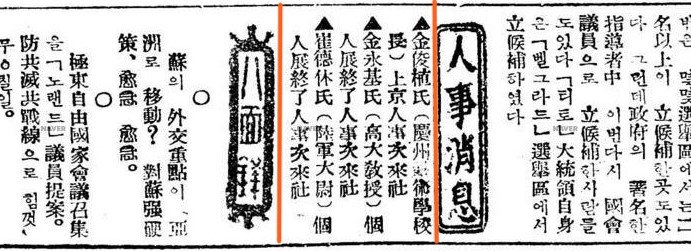 몇몇選擧區에서는
名以上이 立候補한곳도있
다 그런데政府의 著名한
指導者中 이번다시 國會
議員으로 立候補한사람들
도있다 「티토」大統領自身
은「벨그라드」選擧區에서
立候補하였다
人事消息
▲金俊植氏(慶州藝術學校
長)上京人事次來社
▲金永基氏(高大教授)個
人展終了人事次來社
▲崔德休氏(陸軍大尉)個
人展終了人事次來社
八面
○
蘇의 外交重點이 「亞
洲로 移動? 對蘇强硬
策、愈念 愈急。
○
極東自由國家會議召集
을「노랜드」議員提案。
防共滅共戰線으로 힘껏
일。
NAVER
NAVER